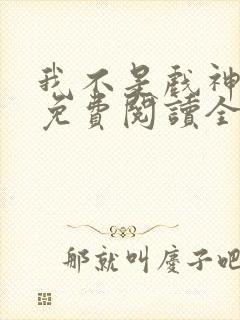 我不是戲神
免費閱讀全
那就叫慶子吧